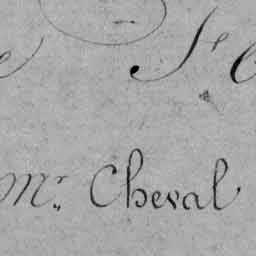 Mr. Cheval